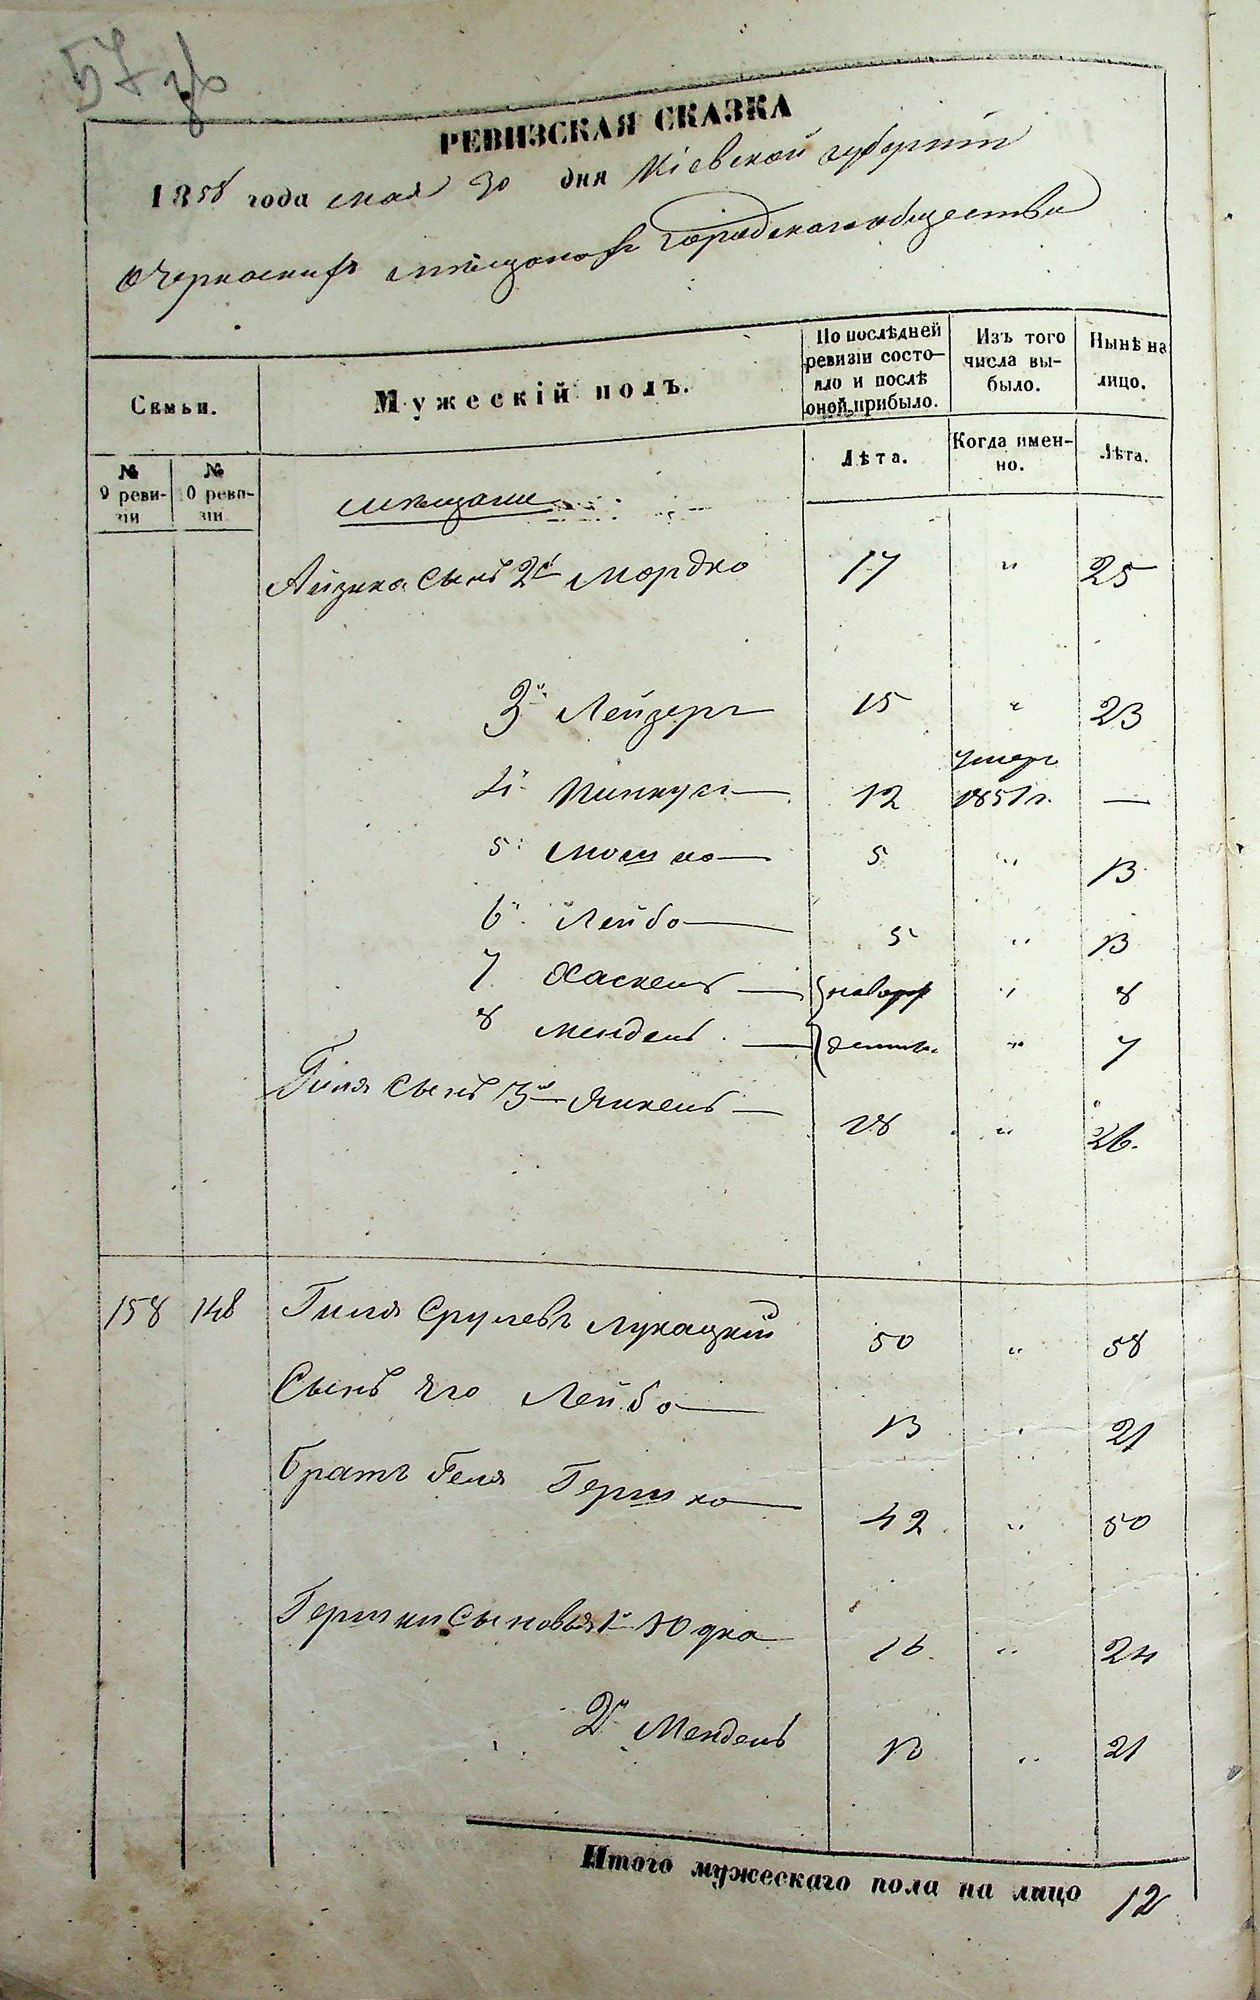 57
РЕВИЗСКАЯ СКАЗКА
1858 года мая 30 дня Кіевской губерніи
О Черкаскихъ мѣщанахъ городского общества
Семьи.
Мужескій полъ.
По послѣдней ревизіи состо-
яло и послѣ
оной прибыло.
Изъ того
числа вы-
было.
Нынѣ на
лицо.
№
9 реви-
зіи
№
10 реви-
зіи
Лѣта.
Когда имен-
но.
Лѣта.
мѣщане
Айзика сынъ 2й Мордко 17 " 25
3й Лейзеръ 15 " 23
4й Пинкусъ 12 умеръ 1851 г. —
5й Мошко 5 " 13
6й Лейба 5 " 13
7 Хаскель новор " 8
8 Мендель " 7
Гиля сынъ 3й Янкель 18 " 26.
158 148 Гиля Срулевъ Лукацкій 50 " 58
Сынъ его Лейба 13 " 21
братъ Геля Гершко 42 " 50
Гершки сыновья 1й Юдка 16 " 24
2й Мендель 13 " 21
Итого мужескаго пола на лицо 12